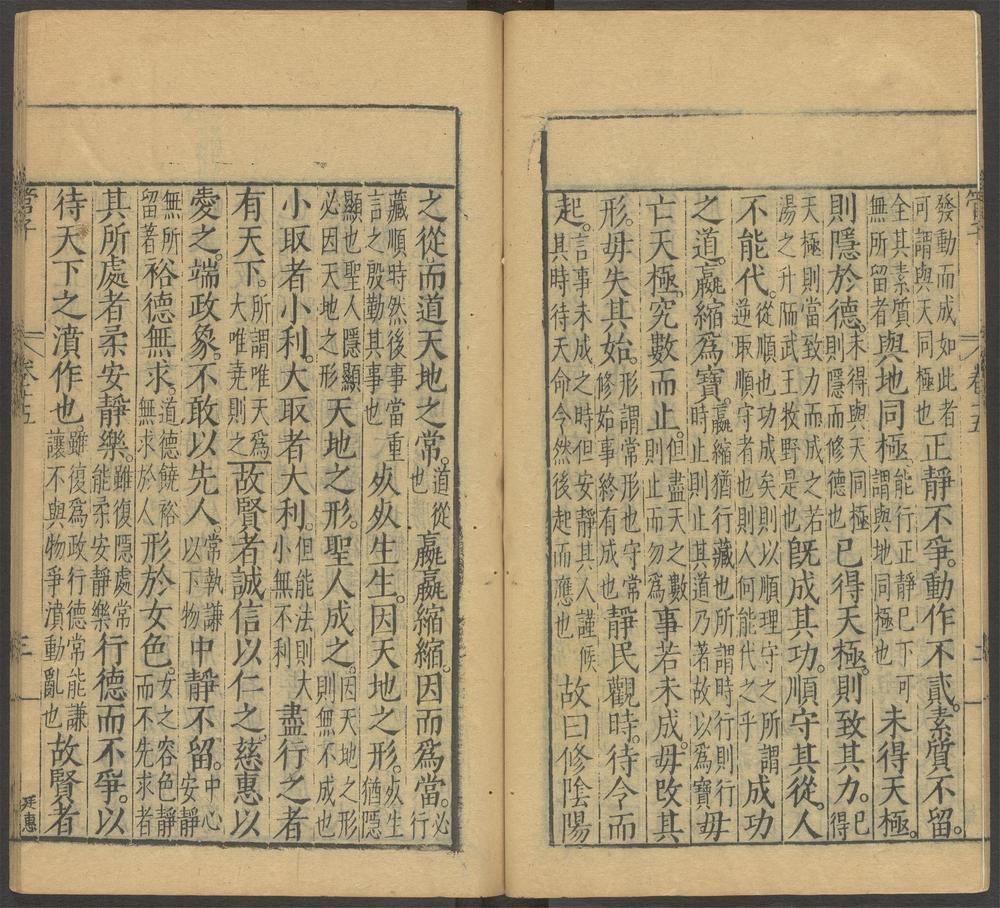 管子 卷十五 二
發動而成如此者可謂與天同極也正靜不爭。動作不貳。素質不留。
全其素質無所留者與地同極。能行正靜巳下可謂與地同極也未得天極。
則隱於德。未得與天同極則隱而修德也已得天極。則致其力。已得
天極則當致力而成之若湯之升陑武王牧野是也旣成其功。順守其從。人
不能代。從順也功成矣則以順理守之所謂逆取順守者也則人何能代之乎成功
之道。嬴縮爲寶。嬴縮猶行藏也所謂時行則行時止則止其道乃著故以爲寶毋
亡天極。究數而止。但盡天之數則止而勿爲事若未成。毋改其
形。毋失其始。形謂常形也守常修始事終有成也靜民觀時。待令而
起。言事未成之時但安靜其人謹候其時待天命令然後起而應也故曰修隂陽
之從而道天地之常。道從也嬴嬴縮縮。因而爲當。必行
藏順時然後事當重言之殷勤其事也死死生生。因天地之形。死生猶隱
顯也聖人隱顯必因天地之形天地之形。聖人成之。因天地之形則無不成也
小取者小利。大取者大利。但能法則大小無不利盡行之者
有天下。所謂唯天爲大唯堯則之故賢者誠信以仁之。慈惠以
愛之。端政象。不敢以先人。常執謙以下物中靜不留。中心安靜
無所留著裕德無求。道德饒裕無求於人形於女色。女之容色靜而不先求者
其所處者柔安靜樂。雖復隱處常能柔安靜樂行德而不爭。以
待天下之濆作也。雖復爲政行德常能謙讓不與物爭濆動亂也故賢者
管子 卷十五 三 廷惠